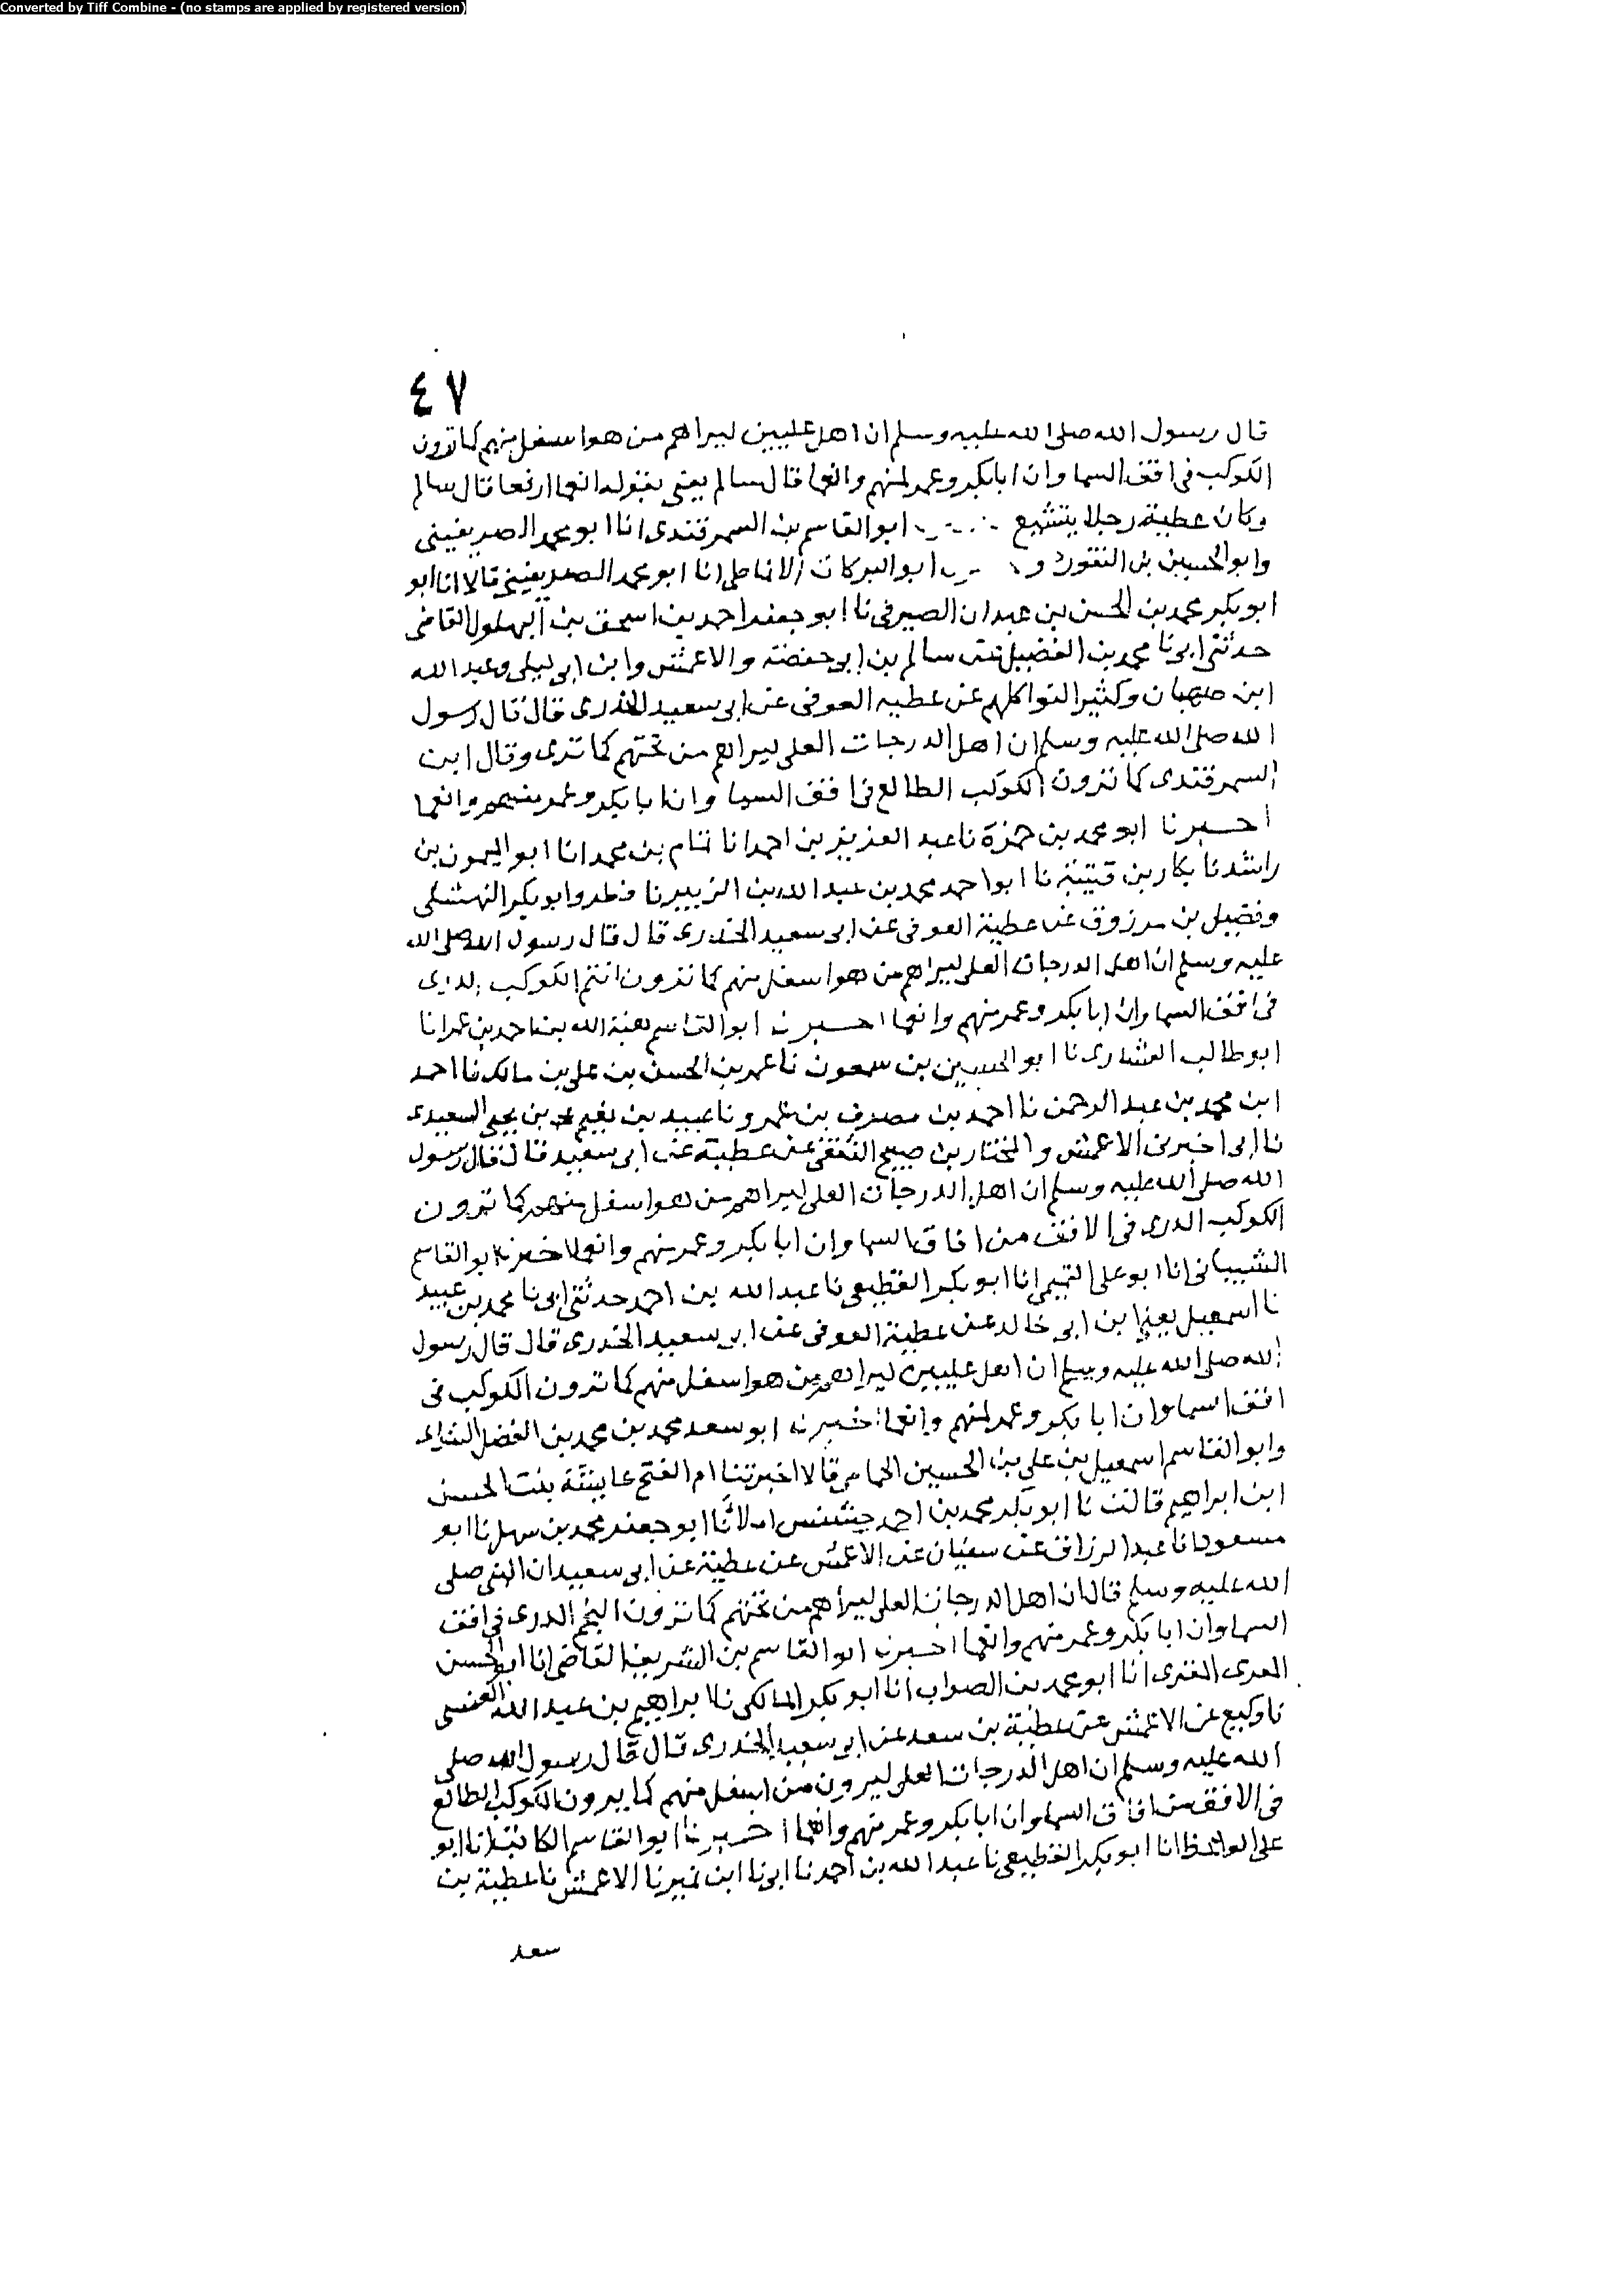 Converted by Tiff Combine - (no stamps are applied by registered version)
٤٧
قال رسول الله صلى الله عليه وسلم ان اهل عليين ليراهم من هو اسفل منهم كما ترون
الكوكب في افق السما وان ابا بكر وعمر لمنهم وانعما قال سالم يعني بقوله انعما ارفعا قال سالم
وكان عطية رجلا يتشيع ابو القاسم بن السمرقندي انا ابو محمد الصريفيني
وابو الحسين بن النقور و ابو البركات الانماطي انا ابو محمد الصريفيني قالا انا ابو
ابو بكر محمد بن الحسن بن عبدان الصيرفي نا ابو جعفر احمد بن اسحق بن البهلول القاضي
حدثني ابي نا محمد بن الفضيل عن سالم بن ابي حفصة والاعمش وابن ابي ليلى وعبد الله
ابن صهبان وكثير النوا كلهم عن عطيه العوفي عن ابي سعيد الخدري قال قال رسول
الله صلى الله عليه وسلم ان اهل الدرجات العلى ليراهم من تحتهم كما ترى وقال ابن
السمرقندي كما ترون الكوكب الطالع في افق السما وان ابا بكر وعمر منهم وانعما
اخبرنا ابو محمد بن حمزة نا عبد العزيز بن احمد انا تمام بن محمد انا ابو الميمون بن
راشد نا بكار بن قتيبة نا ابو احمد محمد بن عبد الله بن الزبير نا فطر وابو بكر النهشلي
وفضيل بن مرزوق عن عطية العوفي عن ابي سعيد الخدري قال قال رسول الله صلى الله
عليه وسلم ان اهل الدرجات العلى ليراهم من هو اسفل منهم كما ترون انتم الكوكب الدري
في افق السما وان ابا بكر وعمر منهم وانعما اخبرنا ابو القاسم هبة الله بن احمد بن عمر انا
ابو طالب العشاري نا ابو الحسين بن سمعون نا عمر بن الحسن بن علي بن مالك نا احمد
ابن محمد بن عبد الرحمن نا احمد بن مصرف بن عمرو نا عبيد بن نعيم بن يحيى السعيدي
نا ابي اخبرني الاعمش والمختار بن صبيح الثقفي عن عطية عن ابي سعيد قال قال رسول
الله صلى الله عليه وسلم ان اهل الدرجات العلى ليراهم من هو اسفل منهم كما ترون
الكوكب الدري في الافق من افاق السما وان ابا بكر وعمر منهم وانعما اخبرنا ابو القاسم
الشيباني انا ابو علي التميمي انا ابو بكر القطيعي نا عبد الله بن احمد حدثني ابي نا محمد بن عبيد
نا اسمعيل يعني ابن ابي خالد عن عطية العوفي عن ابي سعيد الخدري قال قال رسول
الله صلى الله عليه وسلم ان اهل عليين ليراهم من هو اسفل منهم كما ترون الكوكب في
افق السما وان ابا بكر وعمر لمنهم وانعما اخبرنا ابو سعد محمد بن محمد بن الفضل
وابو القاسم اسمعيل بن علي بن الحسين الحمامي قالا اخبرتنا ام الفتح عايشة بنت الحسن
ابن ابراهيم قالت نا ابو بكر محمد بن احمد جشنس املائا ابو جعفر محمد بن سهل نا ابو
مسعود انا عبد الرزاق عن سفيان عن الاعمش عن عطية عن ابي سعيد ان النبي صلى
الله عليه وسلم قال ان اهل الدرجات العلى ليراهم من تحتهم كما ترون النجم الدري في افق
السما وان ابا بكر وعمر منهم وانعما اخبرنا ابو القاسم بن الشريف القاضي انا ابو الحسن
المقرى انا ابو محمد بن الضراب انا ابو بكر المالكي نا ابراهيم بن عبد الله العبسي
نا وكيع عن الاعمش عن عطية بن سعد عن ابي سعيد الخدري قال قال رسول الله صلى
الله عليه وسلم ان اهل الدرجات العلى ليرون من اسفل منهم كما يرون الكوكب الطالع
في الافق من افاق السما وان ابا بكر وعمر منهم وانعما اخبرنا ابو القاسم الكاتب انا ابو
علي الواعظ انا ابو بكر القطيعي نا عبد الله بن احمد نا ابي نا ابن نمير نا الاعمش نا عطية بن
سعد